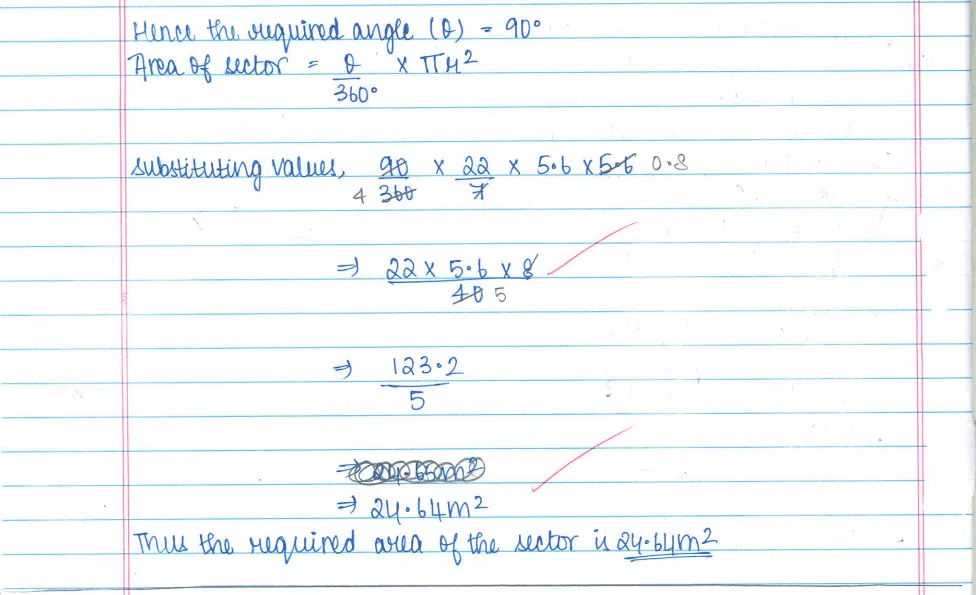 Hence the required angle (θ) = 90°
Area of sector = θ/360° × πr²
substituting values, 90/360 × 22/7 × 5.6 × 5.6 0.8
4
⇒ 22 × 5.6 × 8
40 5
⇒ 123.2
5
⇒ 24.64m²
Thus the required area of the sector is 24.64m²